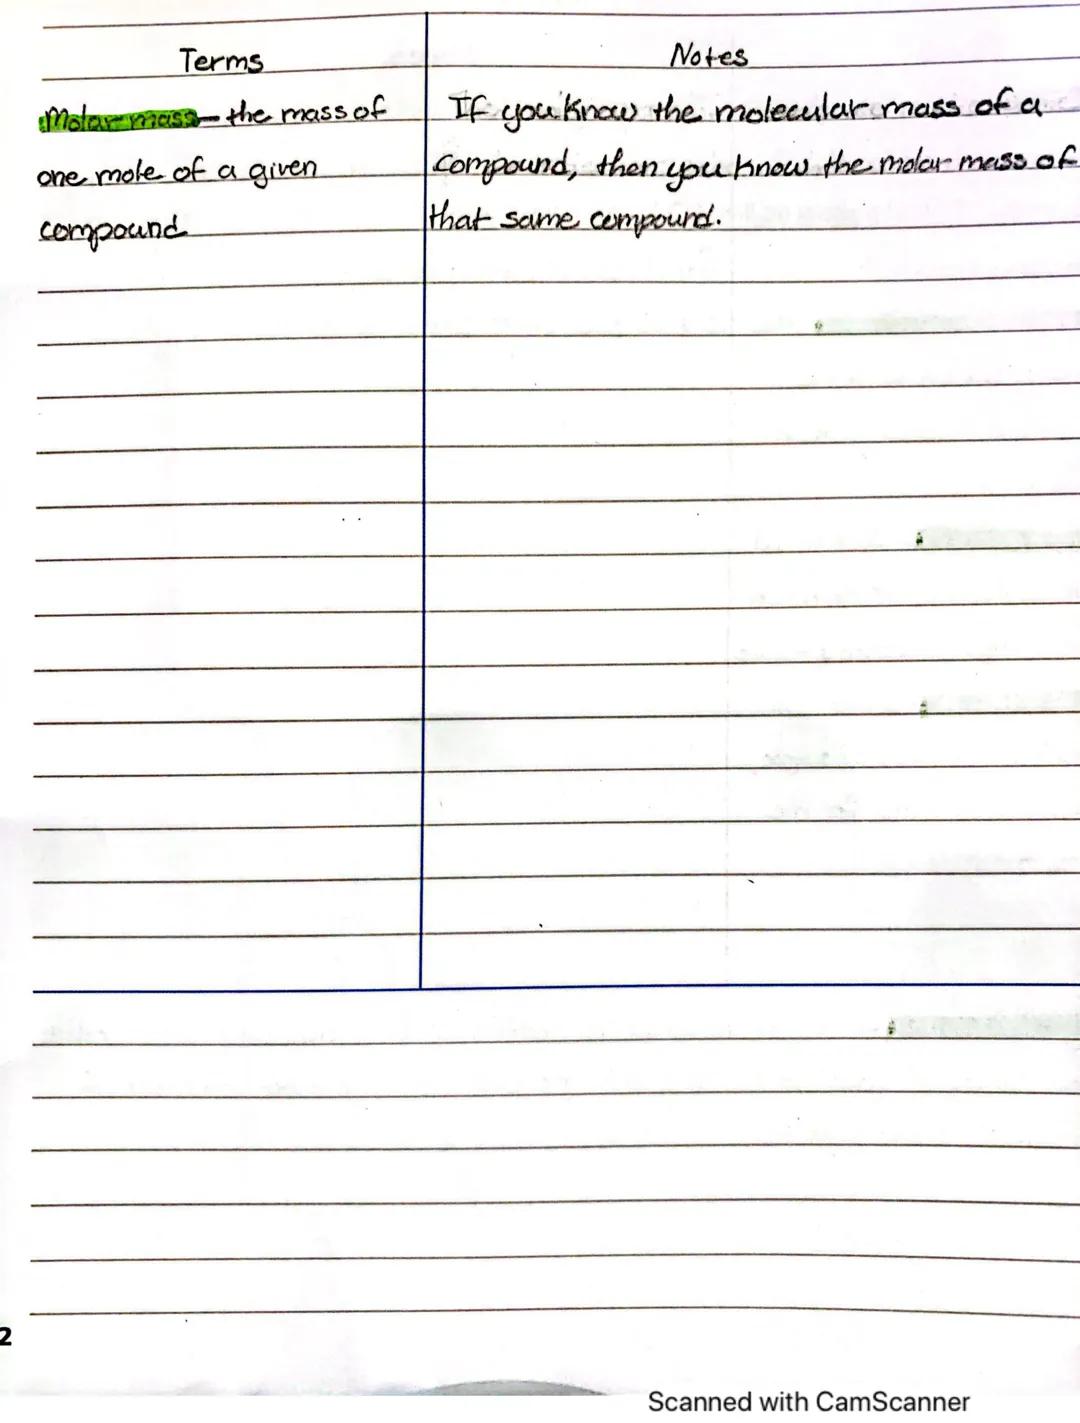 Terms
Notes
Molar mass - the mass of
one mole of a given
compound
If you know the molecular mass of a
compound, then you know the molar mass of
that same compound.
2
Scanned with CamScanner